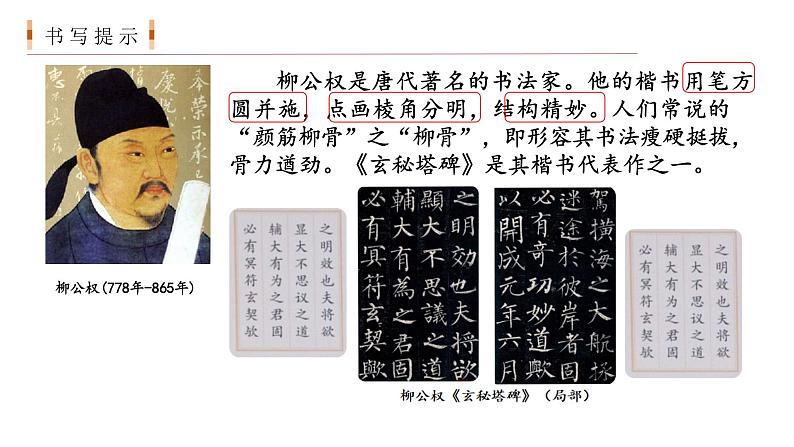 书写提示
柳公权是唐代著名的书法家。他的楷书用笔方
圆并施，点画棱角分明，结构精妙。人们常说的
“颜筋柳骨”之“柳骨”，即形容其书法瘦硬挺拔，
骨力遒劲。《玄秘塔碑》是其楷书代表作之一。
奉榮示承
柳公权(778年-865年)
之明效也夫将欲
显大不思议之道
辅大有为之君固
必有冥符玄契欤
之明効也夫將欲
顯大不思議之道
輔大有為之君固
必有冥符玄契歟
駕橫海之大航拯
迷途於彼岸者固
必有奇功妙道歟
以開成元年六月
之明效也夫将欲
显大不思议之道
辅大有为之君固
必有冥符玄契欤
柳公权《玄秘塔碑》（局部）